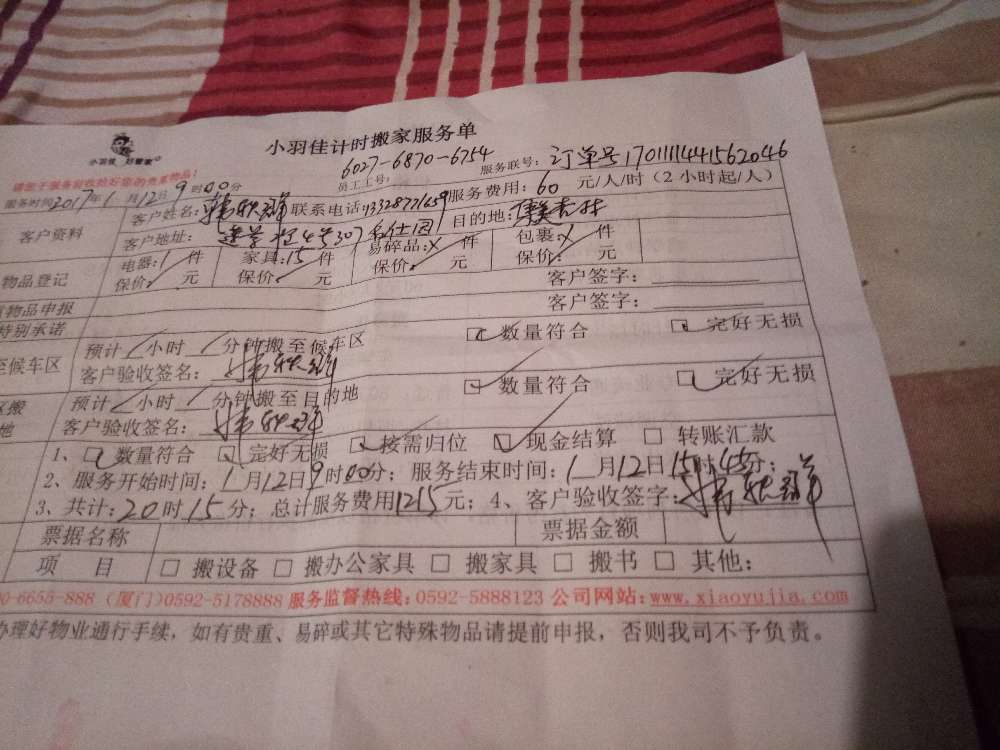 小羽佳计时搬家服务单
小羽佳 好管家
请您于服务前收拾好您的贵重物品!
6027-6870-6754
员工工号: 服务联号: 订单号170111144156 2046
服务时间2017年1月12日9时00分 服务费用: 60 元/人/时(2小时起/人)
客户资料
客户姓名: 联系电话:13328771659 目的地:
客户地址: 4号307
物品登记
电器:1件 家具:15件 易碎品:✓件 包裹:✓件
保价: 元 保价: 元 保价: 元 保价: 元
物品申报 客户签字:
特别承诺 客户签字:
至候车区
预计 小时 分钟搬至候车区 ☑ 数量符合 ☑ 完好无损
客户验收签名:
预计 小时 分钟搬至目的地 ☑ 数量符合 ☑ 完好无损
客户验收签名:
1、☑ 数量符合 ☑ 完好无损 ☑ 按需归位 ☑ 现金结算 □ 转账汇款
2、服务开始时间:1月12日9时00分; 服务结束时间:1月12日15时45分;
3、共计:20时15分; 总计服务费用1215元; 4、客户验收签字:
票据名称 票据金额
项 目 □ 搬设备 □ 搬办公家具 □ 搬家具 □ 搬书 □ 其他:
0-6655-888 (厦门)0592-5178888 服务监督热线:0592-5888123 公司网站:www.xiaoyujia.com
办理好物业通行手续,如有贵重、易碎或其它特殊物品请提前申报,否则我司不予负责。